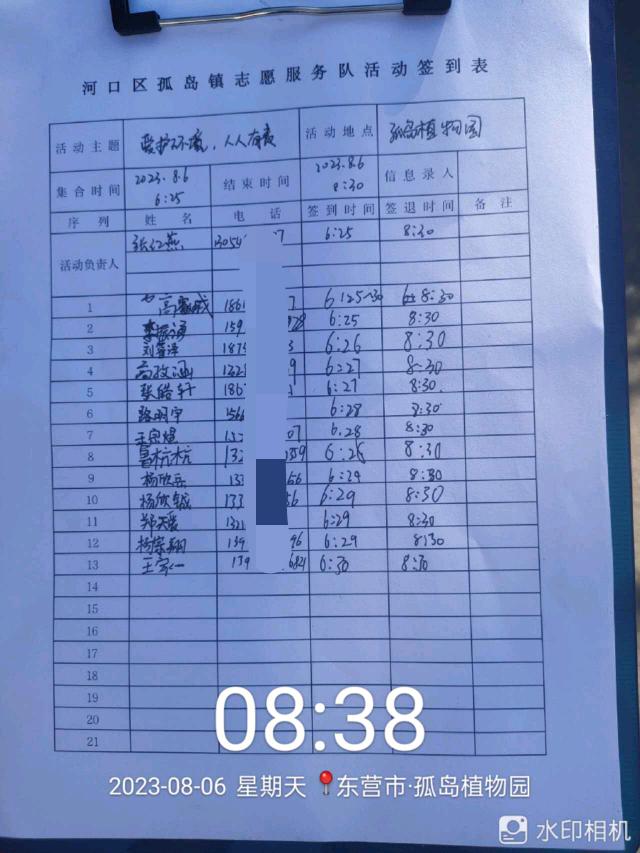 河口区孤岛镇志愿服务队活动签到表
活动主题 爱护环境，人人有责 活动地点 孤岛植物园
集合时间 2023.8.6 6:25 结束时间 2023.8.6 8:30 信息录人
序列 姓名 电话 签到时间 签退时间 备注
活动负责人 张红燕 13054 7 6:25 8:30
1 1861 8:30
2 159 928 6:25 8:30
3 187 3 6:26 8:30
4 132 9 6:27 8:30
5 张皓轩 186 6:27 8:30
6 路明宇 1566 6:28 8:30
7 07 6.28 8:30
8 杭杭 13 359 8:30
9 杨欣 13 56 6:29 8:30
10 杨欣 133 56 6:29 8:30
11 郑天 132 6:29 8:30
12 139 96 6:29 8:30
13 王家一 139 6821 6:30 8:30
14
15
16
17
18
19
20
21
08:38
2023-08-06 星期天 东营市·孤岛植物园
水印相机